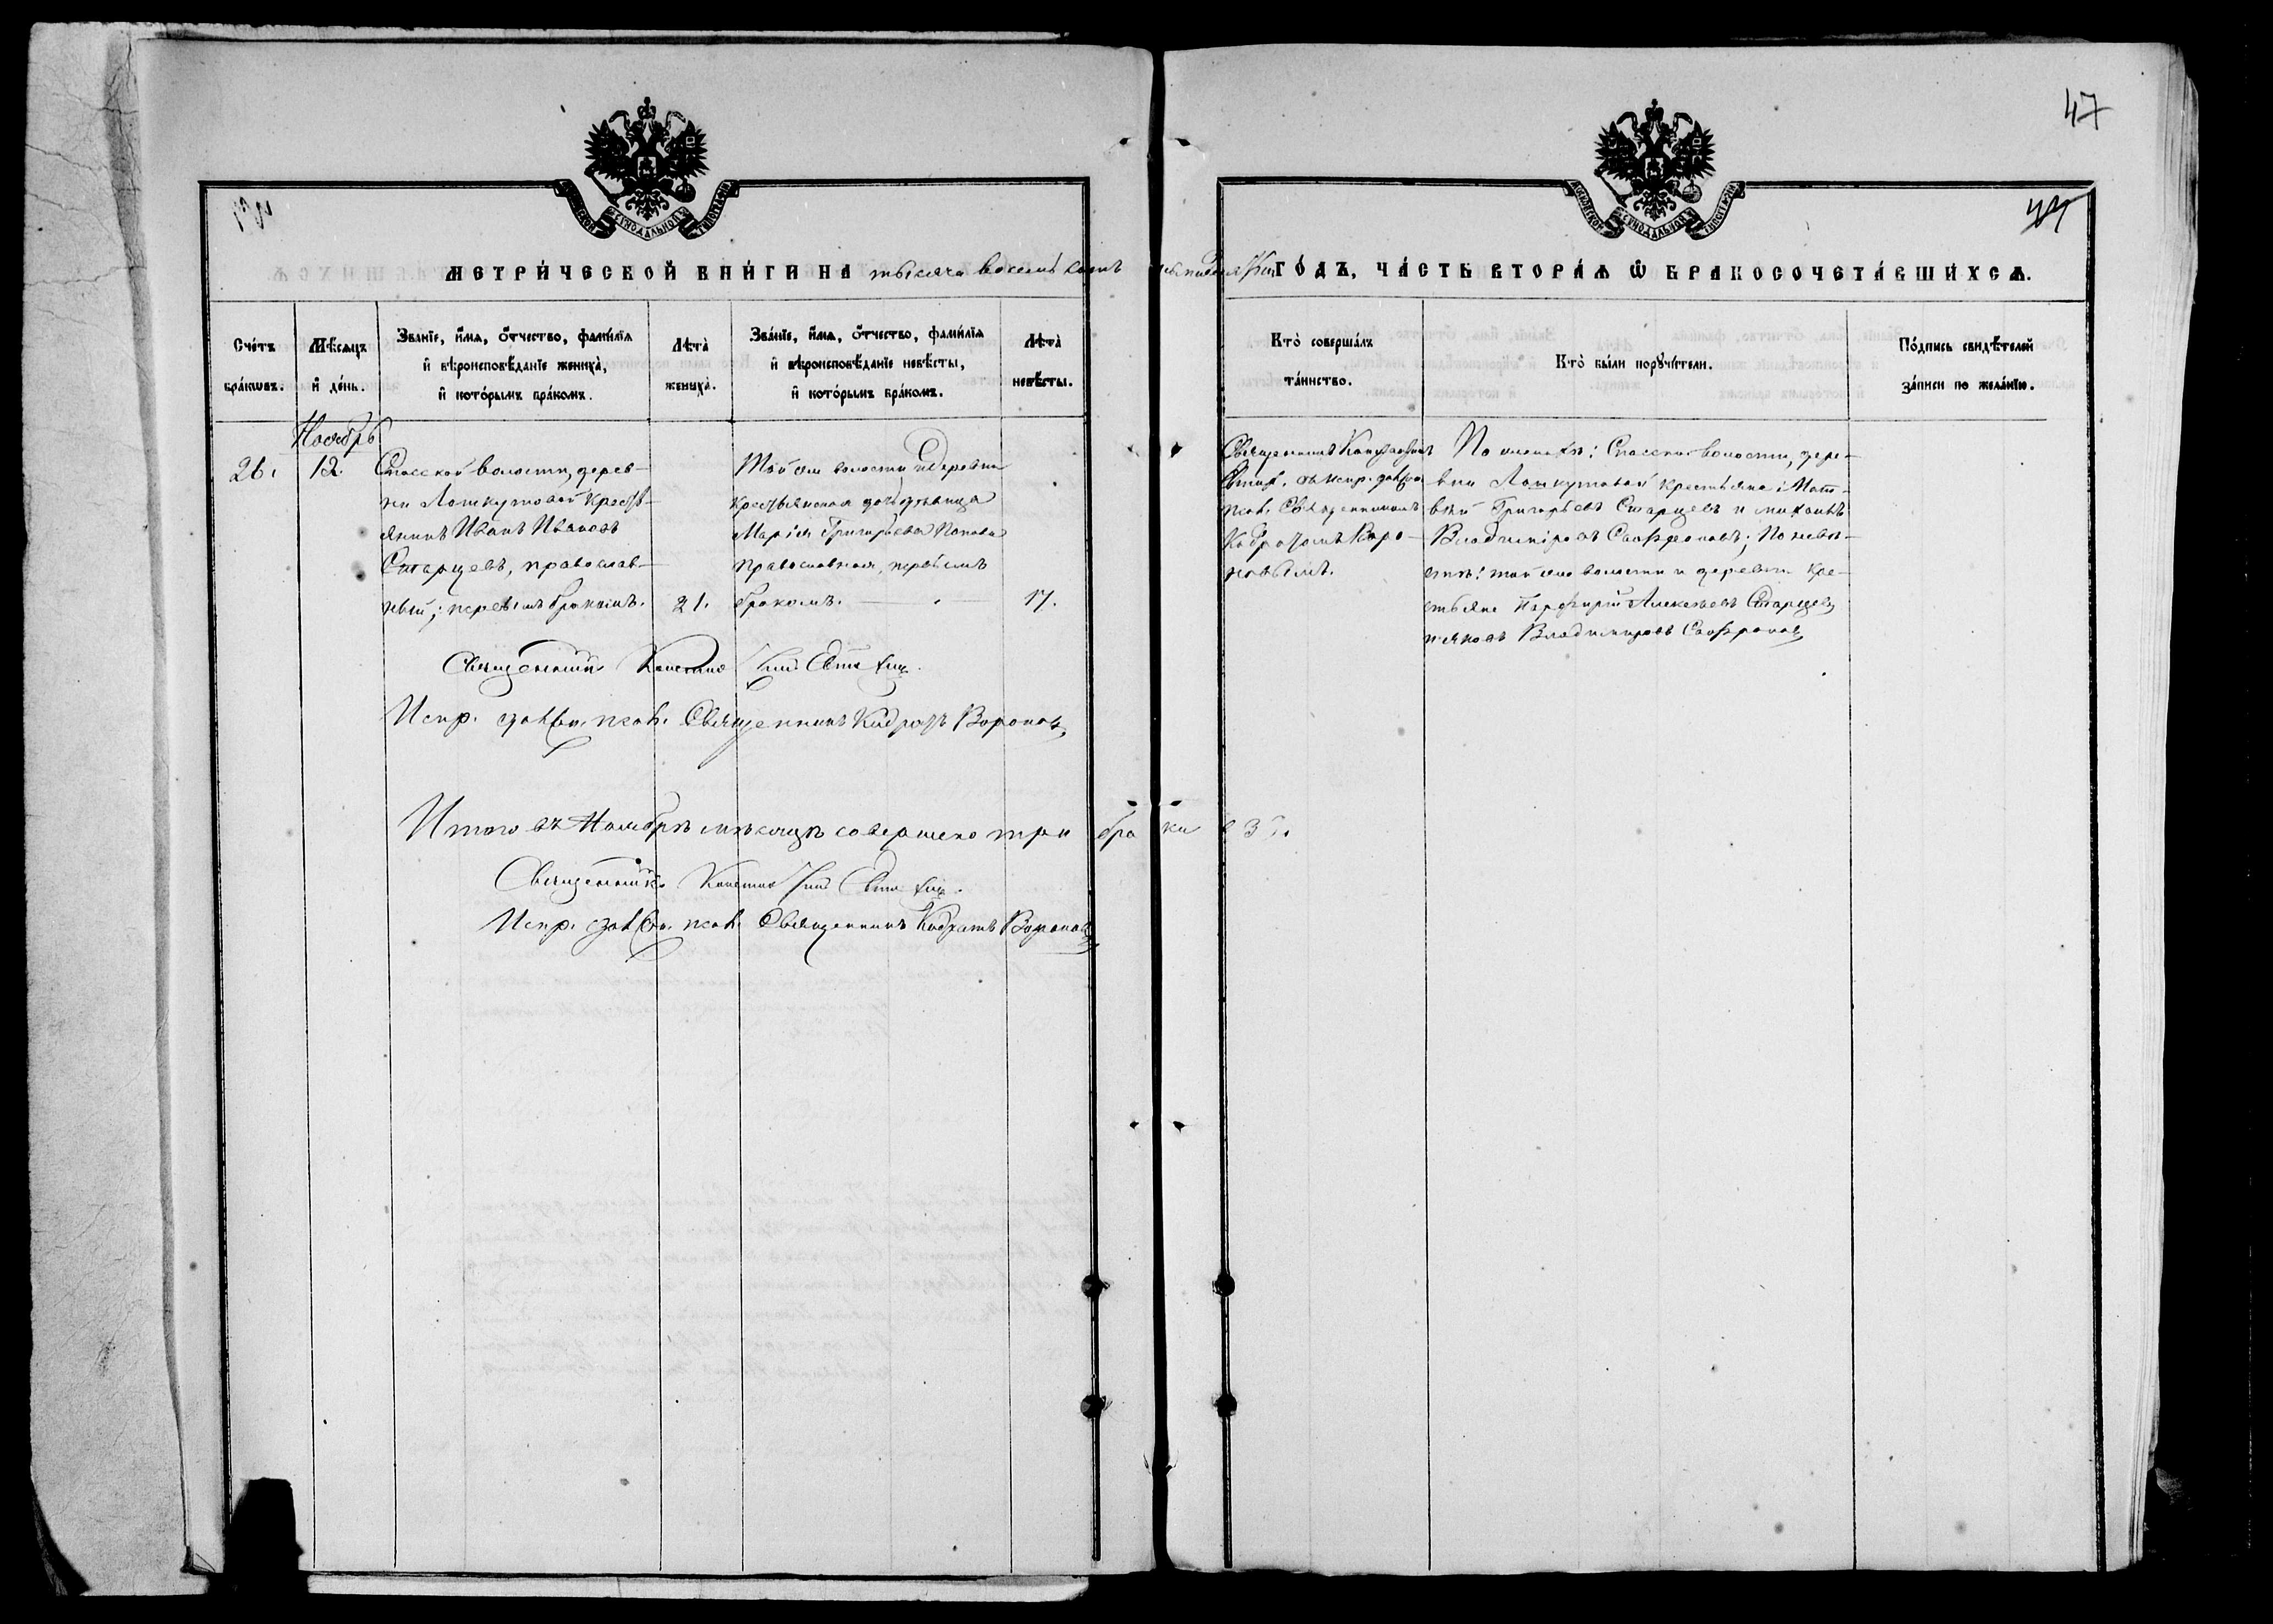 47
44
МОСКОВСКОЙ СѴНОДАЛЬНОЙ ТИПОГРАФІИ
МЕТРИ́ЧЕСКОЙ КНИ́ГИ НА тысяча восемь сотъ
ГО́ДЪ, ЧА́СТЬ ВТОРА́Я Ѽ БРАКОСОЧЕТА́ВШИХСЯ.
Сче́тъ бра́ковъ.
Мѣ́сяцъ и҆ де́нь.
Зва́нїе, и҆́мя, о҆́тчество, фами́лїя и҆ вѣроисповѣ́данїе жениха̀, и҆ кото́рымъ бра́комъ.
Лѣта̀ жениха̀.
Зва́нїе, и҆́мя, о҆́тчество, фами́лїя и҆ вѣроисповѣ́данїе невѣ́сты, и҆ кото́рымъ бра́комъ.
Лѣта̀ невѣ́сты.
Кто̀ соверша́лъ та́инство.
Кто̀ бы́ли порꙋчи́тели.
По́дпись свидѣ́телей за́писи по жела́нїю.
Ноябрь
26.
12.
Спасской волости, дерев-
ни Лоскутовой Кресть-
янинъ Иванъ Ивановъ
Старцевъ, православ-
ный; первымъ бракомъ.
21.
Той же волости и деревни
крестьянская дочь девица
Марія Григорьева Попова
православная, первымъ
бракомъ.
17.
Священникъ Константинъ
исп. Священникомъ
Кодратомъ Воро-
новымъ.
По женихѣ: Спасской волости, дере-
вни Лоскутовой крестьяне: Мат-
вѣй Григорьевъ Старцевъ и
Владиміровъ Сафроновъ; По невѣ-
стѣ: той же волости и деревни кре-
стьяне Порфирій Алексѣевъ Старцевъ
и Яковъ Владиміровъ Сафроновъ
Священникъ Константинъ
Испр. Священникъ Кодратъ Вороновъ
Итого въ Ноябрѣ мѣсяцѣ совершено три браки
Священникъ Константинъ
Испр. Священникъ Кодратъ Вороновъ